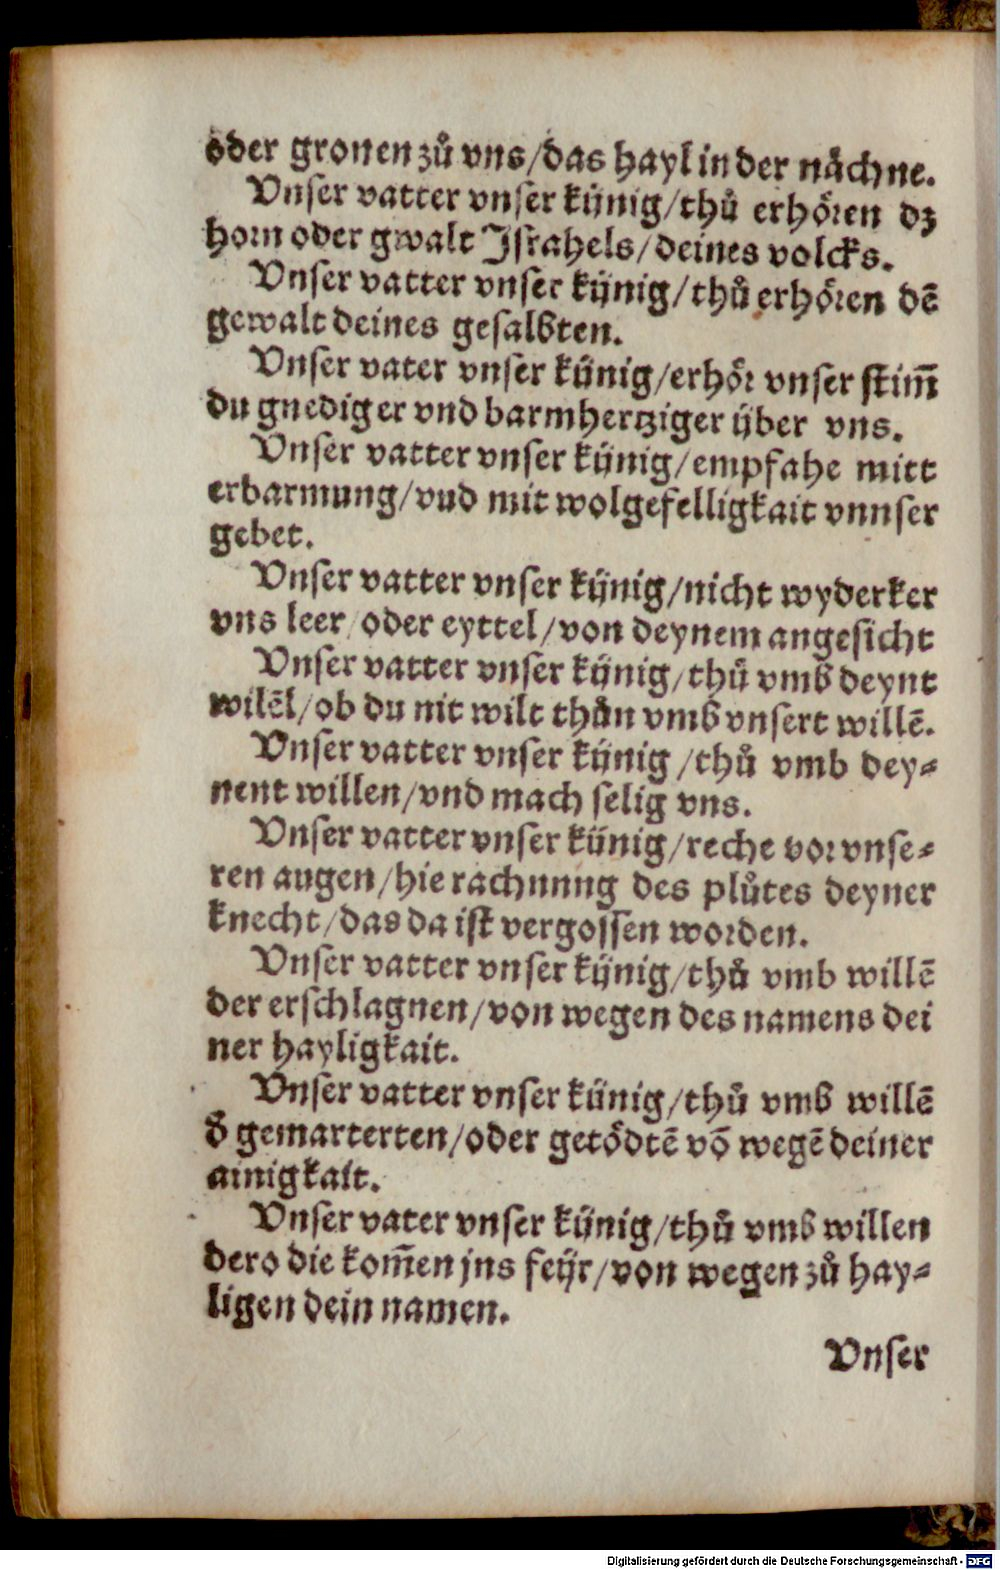 oder gronen zuͦ vns/das hayl in der naͤchne.
Vnser vatter vnser künig/thuͦ erhoͤren dz
horn oder gwalt Jsrahels/deines volcks.
Vnser vatter vnser künig/thuͦ erhoͤren dē
gewalt deines gesalbten.
Vnser vater vnser künig/erhoͤr vnser stim̄
du gnediger vnd barmhertziger über vns.
Vnser vatter vnser künig/empfahe mitt
erbarmung/vnd mit wolgefelligkait vnnser
gebet.
Vnser vatter vnser künig/nicht wyderker
vns leer/oder eyttel/von deynem angesicht
Vnser vatter vnser künig/thuͦ vmb deynt
wilēl/ob du nit wilt thuͦn vmb vnsert willē.
Vnser vatter vnser künig/thuͦ vmb dey⸗
nent willen/vnd mach selig vns.
Vnser vatter vnser künig/reche vor vnse⸗
ren augen/hie rachnung des pluͦtes deyner
knecht/das da ist vergossen worden.
Vnser vatter vnser künig/thuͦ vmb willē
der erschlagnen/von wegen des namens dei
ner hayligkait.
Vnser vatter vnser künig/thuͦ vmb willē
d̄ gemarterten/oder getoͤdtē vō wegē deiner
ainigkait.
Vnser vater vnser künig/thuͦ vmb willen
dero die kom̄en jns feür/von wegen zuͦ hay⸗
ligen dein namen.
Vnser
Digitalisierung gefördert durch die Deutsche Forschungsgemeinschaft - DFG